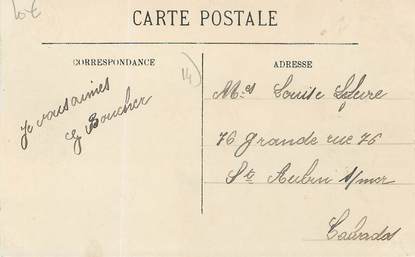 10 €
CARTE POSTALE
CORRESPONDANCE
14
ADRESSE
Je vous aimes
G Boucher
Louise
76 Grande rue 76
St Aubin s/mer
Calvados